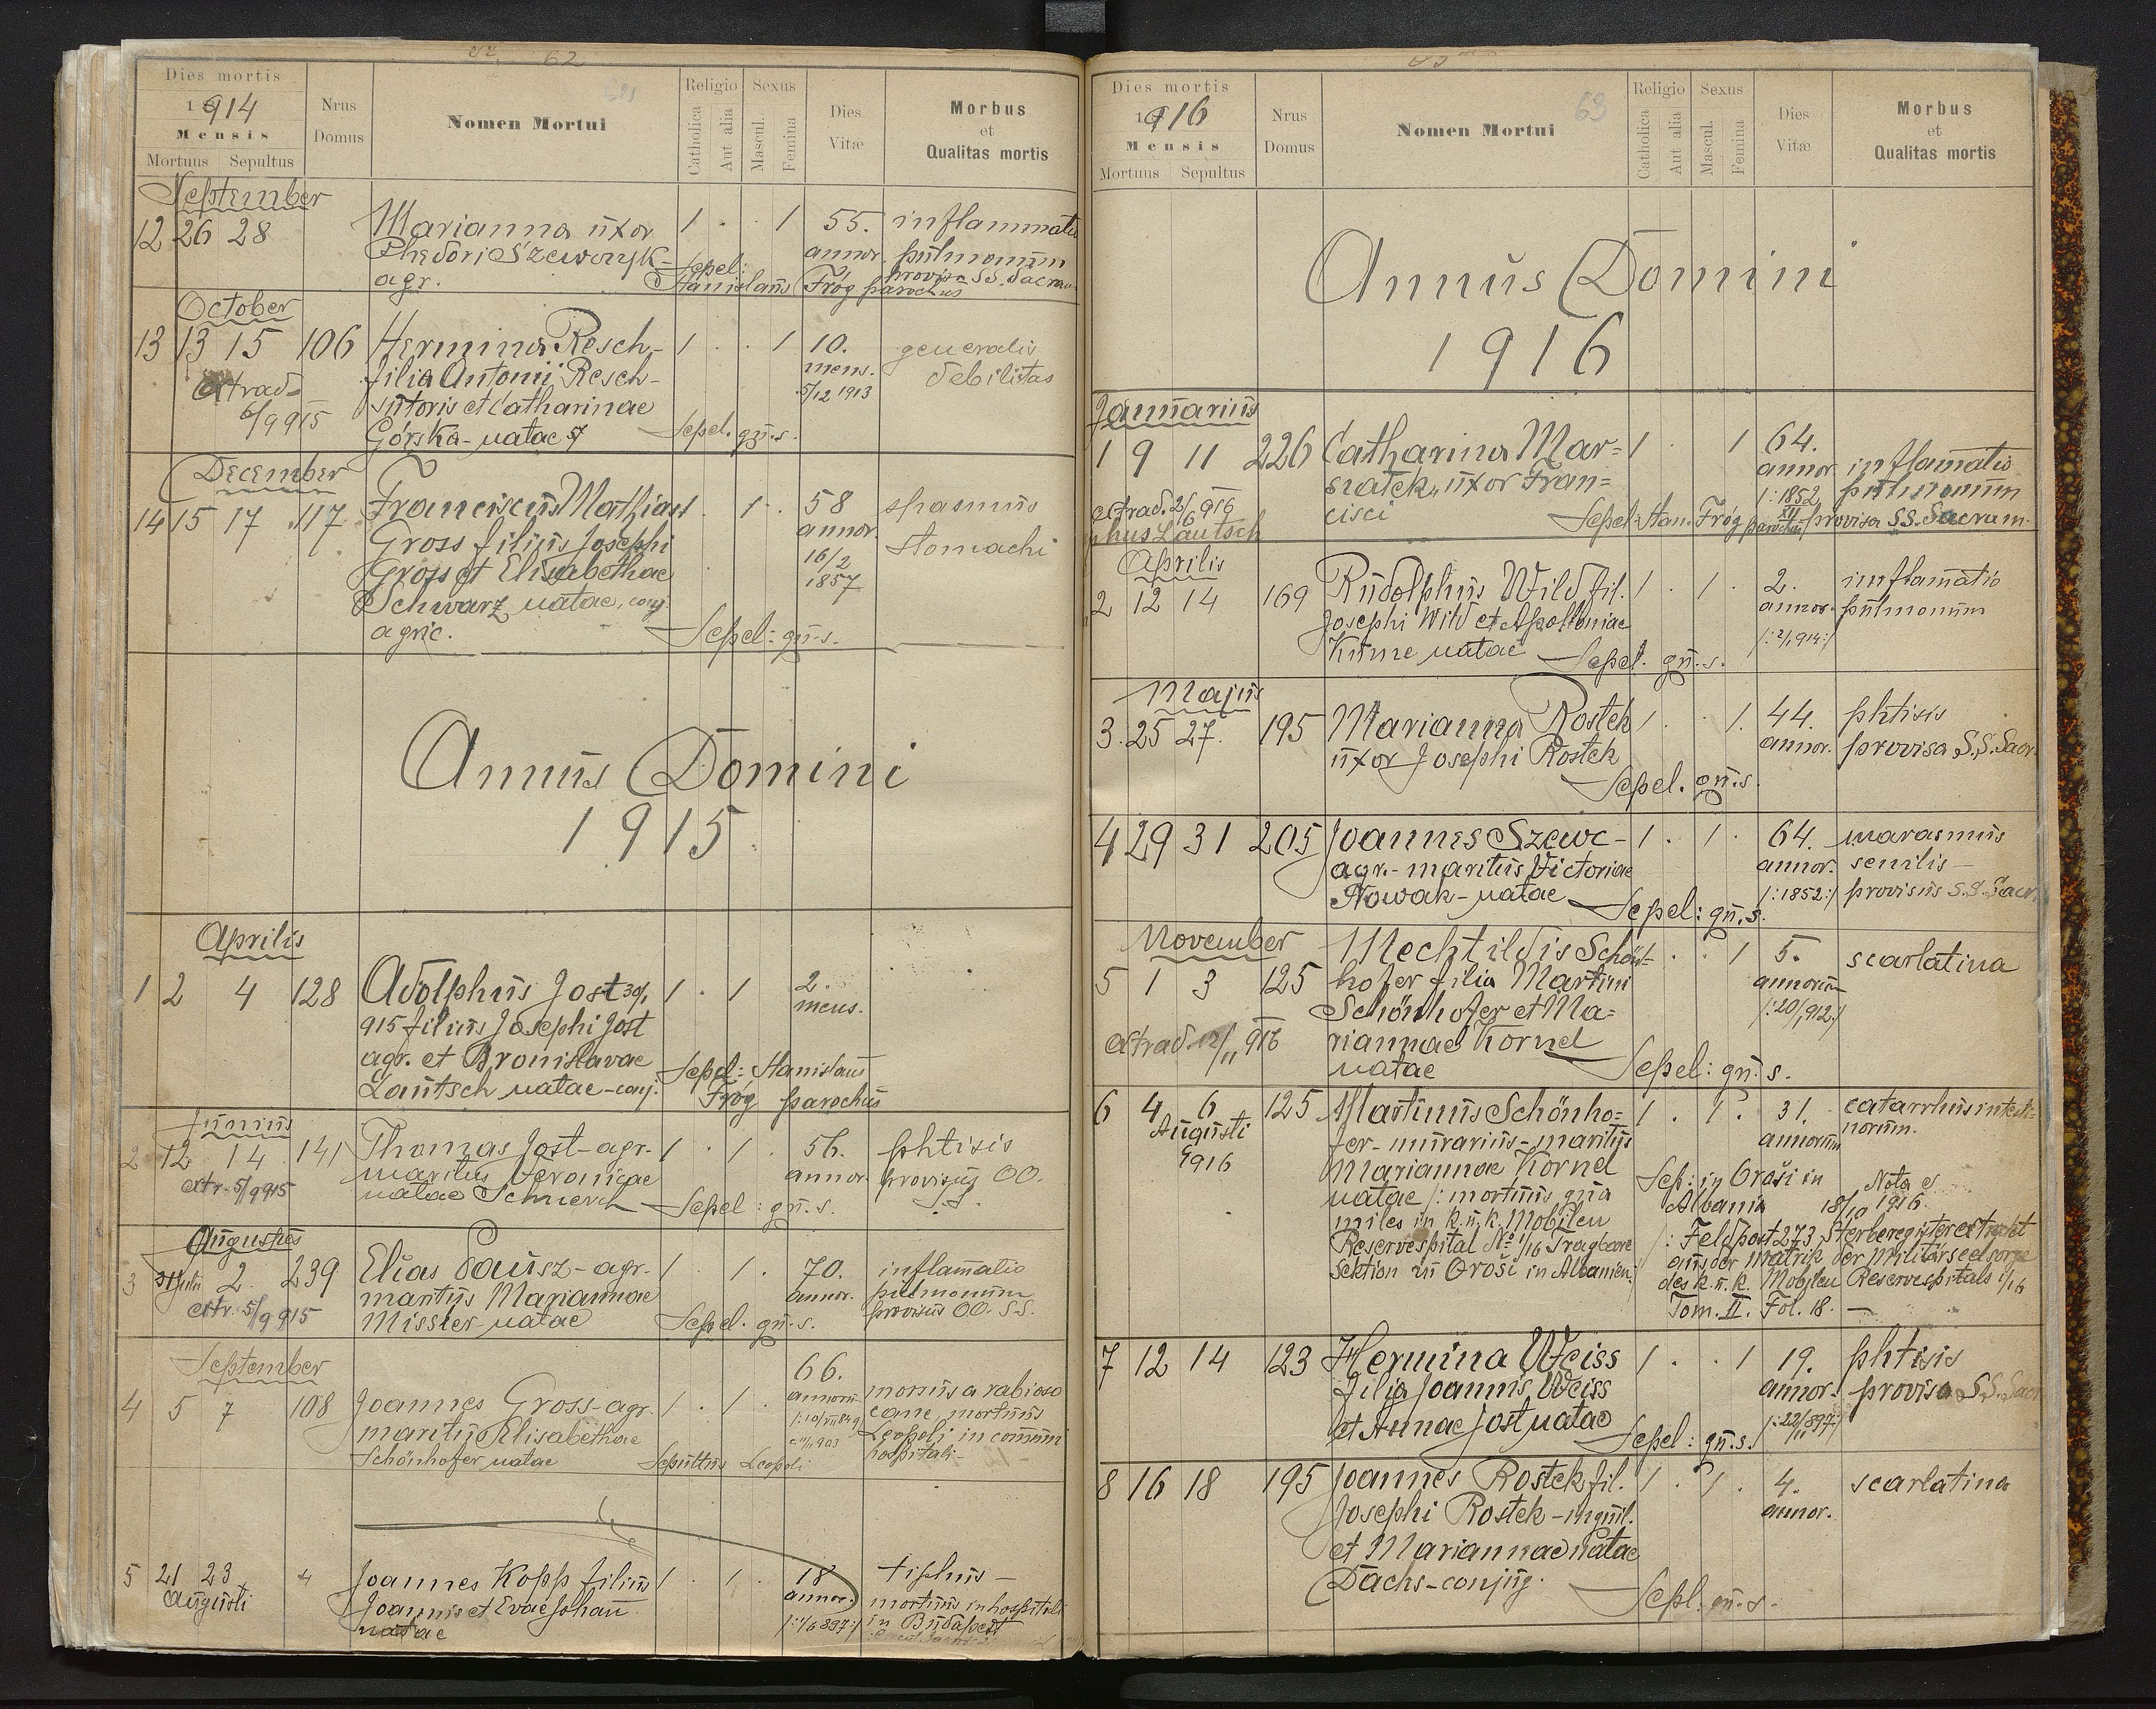 62
Dies mortis
1914
Mensis
Mortuus Sepultus
Nrus
Domus
Nomen Mortui
Religio
Catholica
Aut alia
Sexus
Mascul.
Femina
Dies
Vitæ
Morbus
et
Qualitas mortis
September
12 26 28 Marianna uxor 1 . . 1 55. inflammatio
Phedori Szewczyk- annor. pulmonum
agr. Sepel: provisa SS. Sacram.
Stanislaus Fróg parochus
October
13 13 15 106 Hermina Resch- 1 . . 1 10. generalis
filia Antonii Resch- mens. debilitas
extrad. sutoris et Catharinae 5/12 1913
6/9 915 Górska-natae Sepel. qu. s.
December
14 15 17 117 Franciscus Mathias 1 . 1 . 58 spasmus
Gross filius Josephi annor. stomachi
Gross et Elisabethae 16/2
Schwarz natae, conj. 1857
agric. Sepel: qu. s.
Annus Domini
1915
Aprilis
1 2 4 128 Adolphus Jost 30/1 1 . 1 2.
915 filius Josephi Jost mens.
agr. et Bronislavae Sepel: Stanislaus
Lautsch natae-conj. Fróg parochus
Junius
2 12 14 141 Thomas Jost-agr. 1 . 1 . 56. phtisis
maritus Veronicae annor. provisus OO.
extr. 5/9 915 natae Schmerch Sepel: qu. s. S.S.
Augustus
3 31 Julii 2 239 Elias Pausz-agr. 1 . 1 . 70. inflamatio
maritus Mariannae annor. pulmonum
extr. 5/9 915 Missler natae Sepel. qu. s. provisus OO. S.S.
September
4 5 7 108 Joannes Gross-agr. 1 . 1 . 66. morsus a rabioso
maritus Elisabethae annorum cane, mortuus
Schönhofer natae Sepultus Leopoli Leopoli in communi
hospitali
5 21 23 4 Joannes Kopp filius 1 . 1 . 18 tiphus-
Augusti Joannis et Evae Johan annor. mortuus in hospitali
natae /:1/6 897:/ in Budapest
Dies mortis
1916
Mensis
Mortuus Sepultus
Nrus
Domus
Nomen Mortui
63
Religio
Catholica
Aut alia
Sexus
Mascul.
Femina
Dies
Vitæ
Morbus
et
Qualitas mortis
Annus Domini
1916
Januarius
1 9 11 226 Catharina Mar= 1 . 1 64.
szałek, uxor Fran= annor. inflamatio
extrad. 2/6 916 cisci /:1852 pulmonum
Lautsch Sepel: Stan. Fróg parochus provisa SS. Sacram.
Aprilis
2 12 14 169 Rudolphus Wild fil. 1 . 1 . 2. inflamatio
Josephi Wild et Apolloniae annor. pulmonum
Kurne natae Sepel. qu. s. /:2/1 914:/
Majus
3. 25 27. 195 Marianna Rostek 1 . . 1. 44. phtisis
uxor Josephi Rostek annor. provisa S.S. Sacr.
Sepel. qu. s.
4 29 31 205 Joannes Szewc- 1 . 1 . 64. marasmus
agr.-maritus Victoriae annor. senilis-
Nowak-natae /:1852:/ provisus S.S. Sacr.
Sepel: qu. s.
November
Mechtildis Schön= . . 1 5. scarlatina
5 1 3 125 hofer filia Martini annorum
Schönhofer et Ma= /:20/1 912:/
extrad. 12/11 916 riannae Kornel
natae Sepel: qu. s.
6 4 6 125 Martinus Schönho= 1 . 1 . 31. catarrhus intesti=
Augusti fer-murarius-maritus annorum norum.
1916 Mariannae Kornel Sep: in Oroši in Nota e
natae /:mortuus qua Albania 18/10 1916.
miles in k.u.k. Mobilen /:Feldpost 273, Sterberegisterextrakt
Reservespital No 1/16 Tragbare aus der Matrik der Militärseelsorge
Sektion zu Oroši in Albanien:/ des k.u.k. Mobilen Reservespitals 1/16
Tom. II. Fol. 18.-
7 12 14 123 Hermina Weiss 1 . . 1 19. phtisis
filia Joannis Weiss annor. provisa S.S. Sacr
et Annae Jost natae /:22/11 897:/
Sepel: qu. s.
8 16 18 195 Joannes Rostek fil. 1 . 1 . 4. scarlatina
Josephi Rostek-inquil. annor.
et Mariannae natae
Dachs-conjug. Sepl: qu. s.